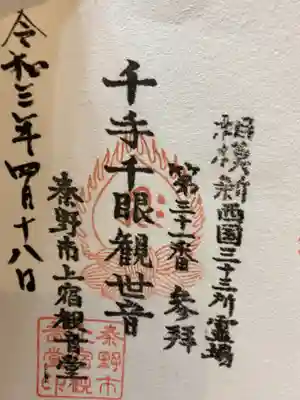 相模新西国三十三所霊場
第三十一番 参拝
千手千眼観世音
秦野市上宿観音堂
令和三年四月十八日
秦野市
上宿観
音堂印